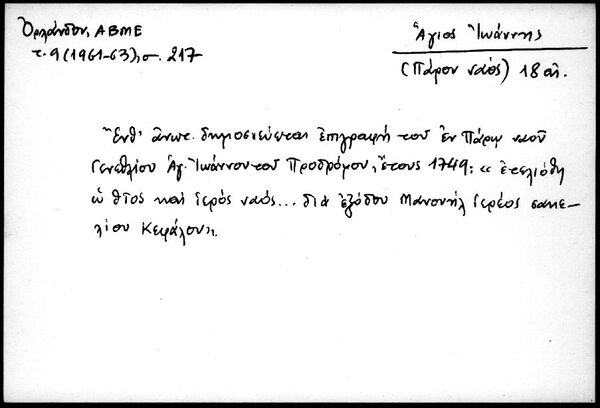 Ὀρλάνδου, ΑΒΜΕ
τ. 9 (1961-63), σ. 217
Ἅγιος Ἰωάννης
(Πάρου ναός) 18 αἰ.
Ἔνθ' ἀνωτ. δημοσιεύεται ἐπιγραφή τοῦ ἐν Πάρῳ ναοῦ
Γενεθλίου Ἁγ. Ἰωάννου τοῦ Προδρόμου, ἔτους 1749: « ἐτελιόθη
ὠ θῖος καί ἱερός ναός... διά ἐξόδου Μανουήλ ἱερέος σακε-
λίου Κεφάλου».